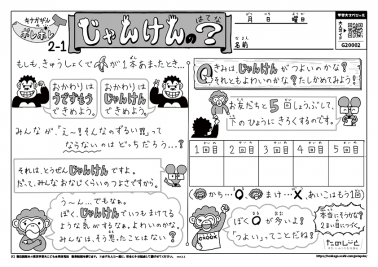 キナガザル
2-1
じゃんけんの?
はてな
月 日 曜日
名前
G20002
もしも、きゅうしょくで が1本あまったとき…?
おかわりは
うでずもう
できめよう。
おかわりは
じゃんけん
できめよう。
みんなが「え〜!そんなのずるい」って
ならないのは どっちだろう…?
それは、とうぜんじゃんけんですよ。
だって、みんなおなじくらいのつよさですから。
う〜ん…でもなぁ。
ぼく、じゃんけんでいつもまけてる
ような気がするなぁ。よわいのかな。
みんなは、そう思ったことはない?
Q きみはじゃんけんがつよいのかな?
それともよわいのかな?たしかめてみよう!
お友だちと5回しょうぶして、
下のひょうにきろくするのです。
1回目 2回目 3回目 4回目 5回目
かち…○、まけ…×、あいこはもう1回
ぼくが多いよ!
「つよい」ってことだね!
本当にそうかな?
2まい目につづく